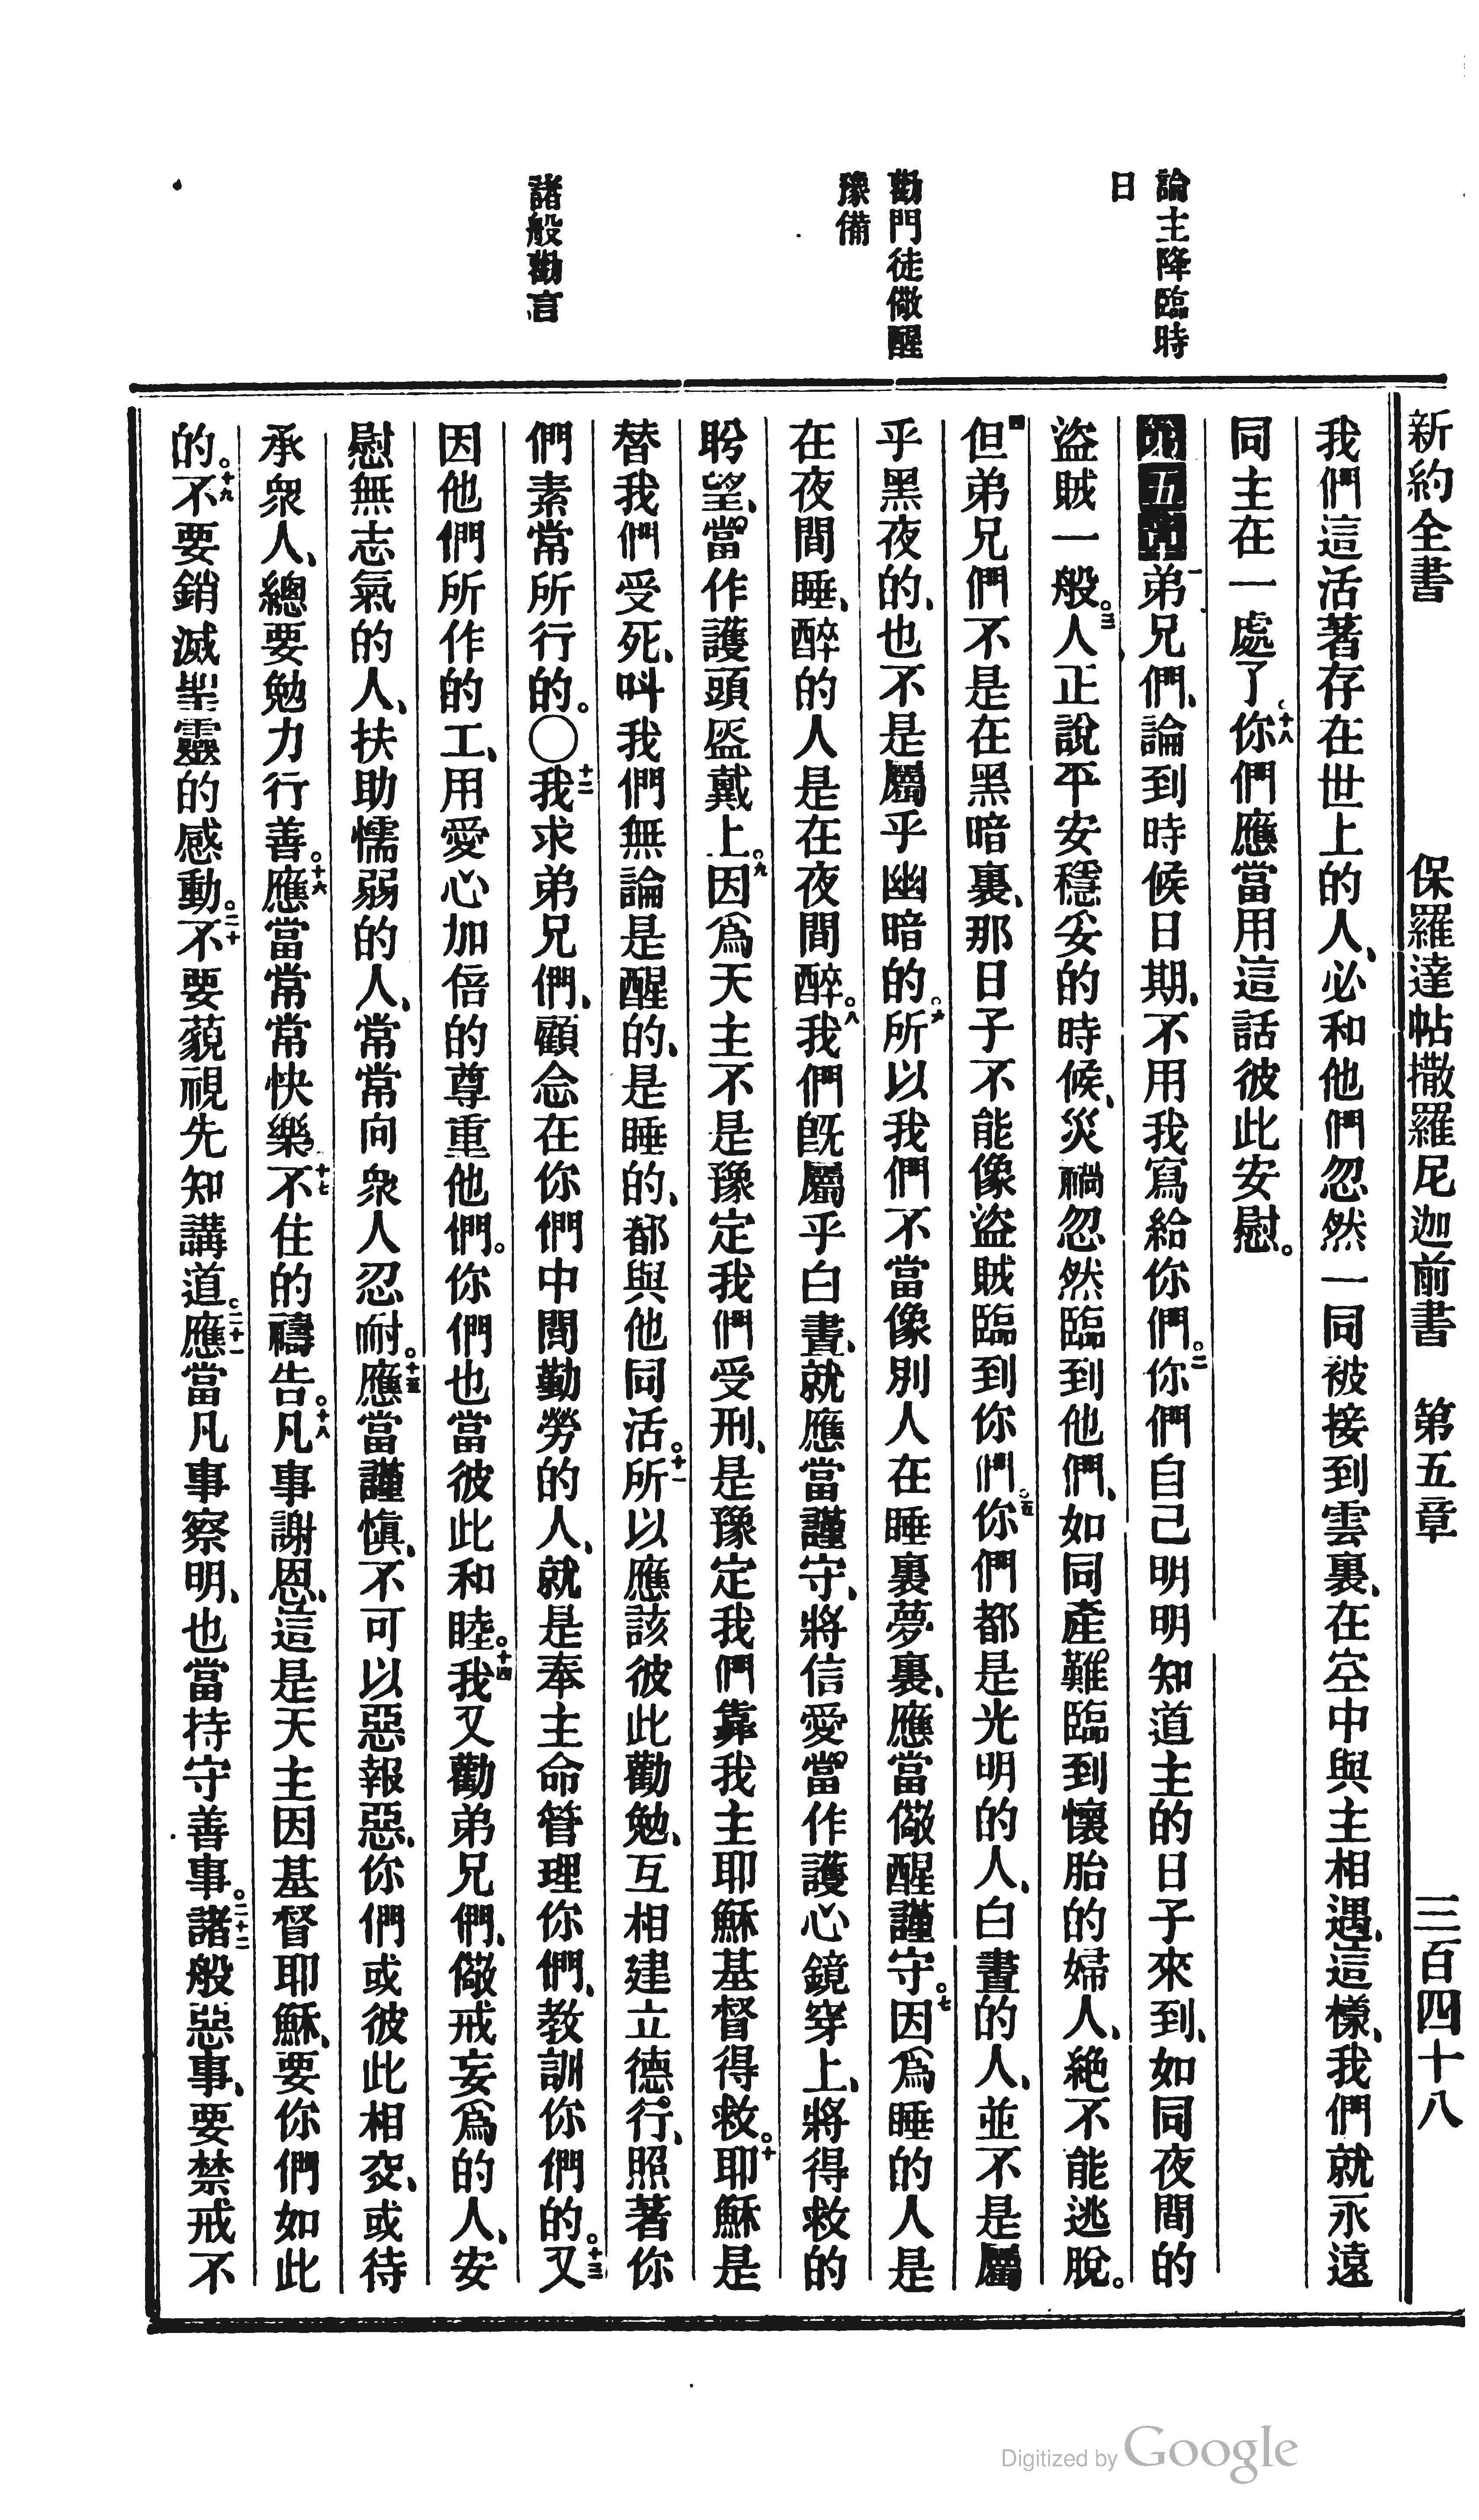 新約全書　保羅達帖撒羅尼迦前書　第五章　三百四十八
論主降臨時
日
勸門徒儆醒
豫備
諸般勸言
我們這活著存在世上的人、必和他們忽然一同被接到雲裏、在空中與主相遇、這樣、我們就永遠
同主在一處了。十八你們應當用這話彼此安慰。
第五章一弟兄們、論到時候日期、不用我寫給你們。二你們自己明明知道主的日子來到、如同夜間的
盜賊一般。三人正說平安穩妥的時候、災禍忽然臨到他們、如同產難臨到懷胎的婦人、絕不能逃脫。
四但弟兄們不是在黑暗裏、那日子不能像盜賊臨到你們。五你們都是光明的人、白晝的人、並不是屬
乎黑夜的、也不是屬乎幽暗的。六所以我們不當像別人在睡裏夢裏、應當儆醒謹守。七因爲睡的人是
在夜間睡、醉的人是在夜間醉。八我們旣屬乎白晝、就應當謹守、將信愛當作護心鏡穿上、將得救的
盼望、當作護頭盔戴上。九因爲天主不是豫定我們受刑、是豫定我們靠我主耶穌基督得救。十耶穌是
替我們受死、叫我們無論是醒的、是睡的、都與他同活。十一所以應該彼此勸勉、互相建立德行、照著你
們素常所行的。〇十二我求弟兄們、顧念在你們中間勤勞的人、就是奉主命管理你們、教訓你們的。十三又
因他們所作的工、用愛心加倍的尊重他們。你們也當彼此和睦。十四我又勸弟兄們、儆戒妄爲的人、安
慰無志氣的人、扶助懦弱的人、常常向衆人忍耐。十五應當謹愼、不可以惡報惡、你們或彼此相交、或待
承衆人、總要勉力行善。十六應當常常快樂。十七不住的禱告。十八凡事謝恩、這是天主因基督耶穌、要你們如此
的。十九不要銷滅聖靈的感動。二十不要藐視先知講道。二十一應當凡事察明、也當持守善事。二十二諸般惡事、要禁戒不
Digitized by Google